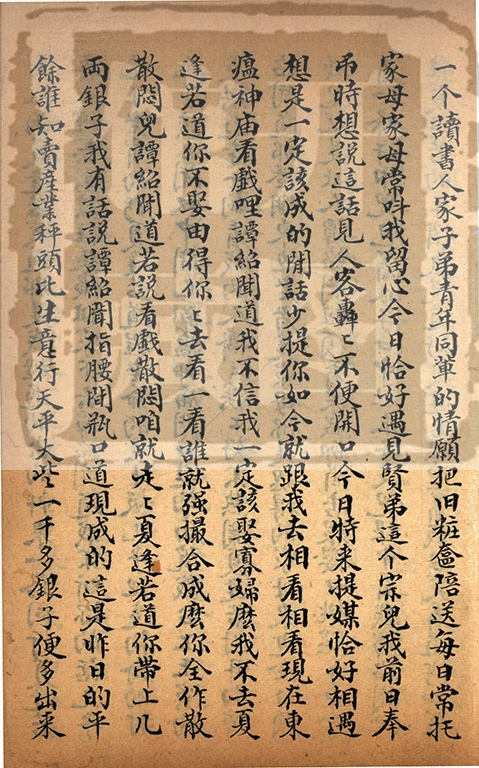 一个讀書人家子弟青年同單的情願把旧粧奩陪送每日常托
家母家母常呌我留心今日恰好遇見賢弟這个宗兒我前日奉
吊時想說這話見人客轟〻不便開口今日特来提媒恰好相遇
想是一定該成的閒話少提你如今就跟我去相看相看現在東
瘟神庙看戲哩譚紹聞道我不信我一定該娶寡婦麽我不去夏
逢若道你不娶由得你〻去看一看誰就强撮合成麽你全作散
散悶兒譚紹聞道若說看戲散悶咱就走〻夏逢若道你带上几
両銀子我有話說譚紹聞指腰閒瓶口道現成的這是昨日的平
餘誰知賣産業秤頭比生意行天平大些一千多銀子便多出来